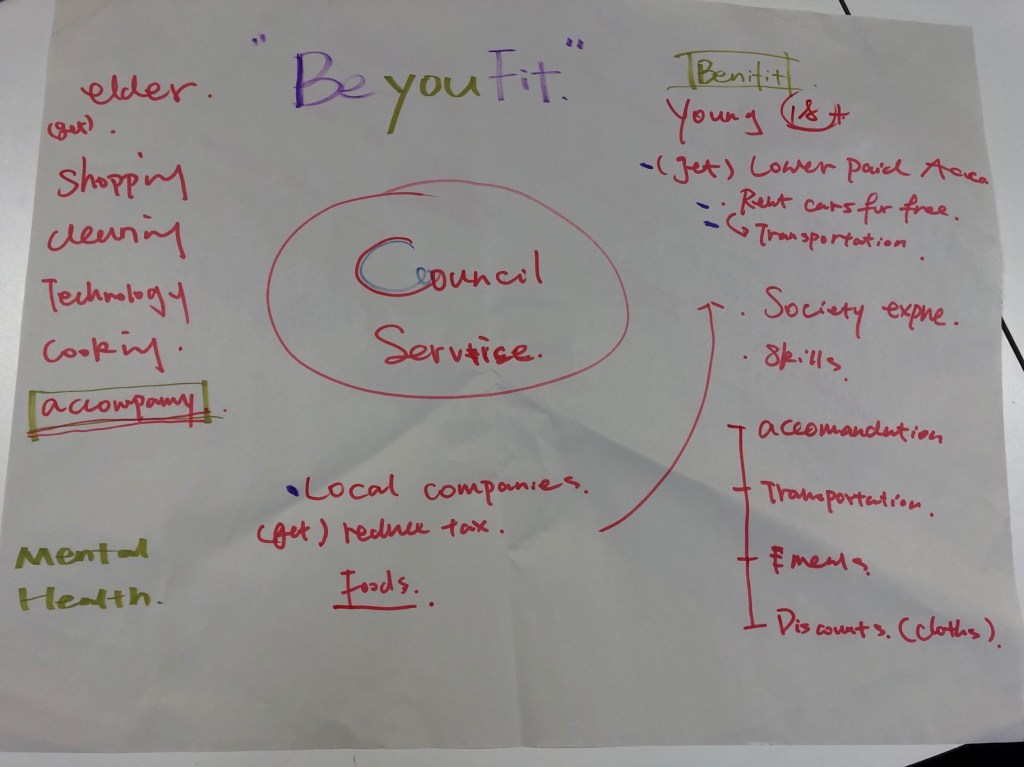 "BeyouFit."
elder.
(get).
shopping
cleaning
Technology
cooking.
accompany.
Mental
Health.
Council
Service.
Local companies.
(get) reduce tax.
Foods.
Benifit
Young 18+
(get) Lower paid
Rent cars for free.
Transportation
Society expne.
skills.
accomandation
Transportation.
meals.
Discounts. (cloths).